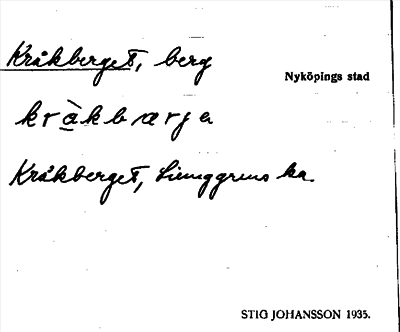 Kråkberget, berg
Nyköpings stad
kràkbærja
Kråkberget, Ljunggrens ka.
STIG JOHANSSON 1935.